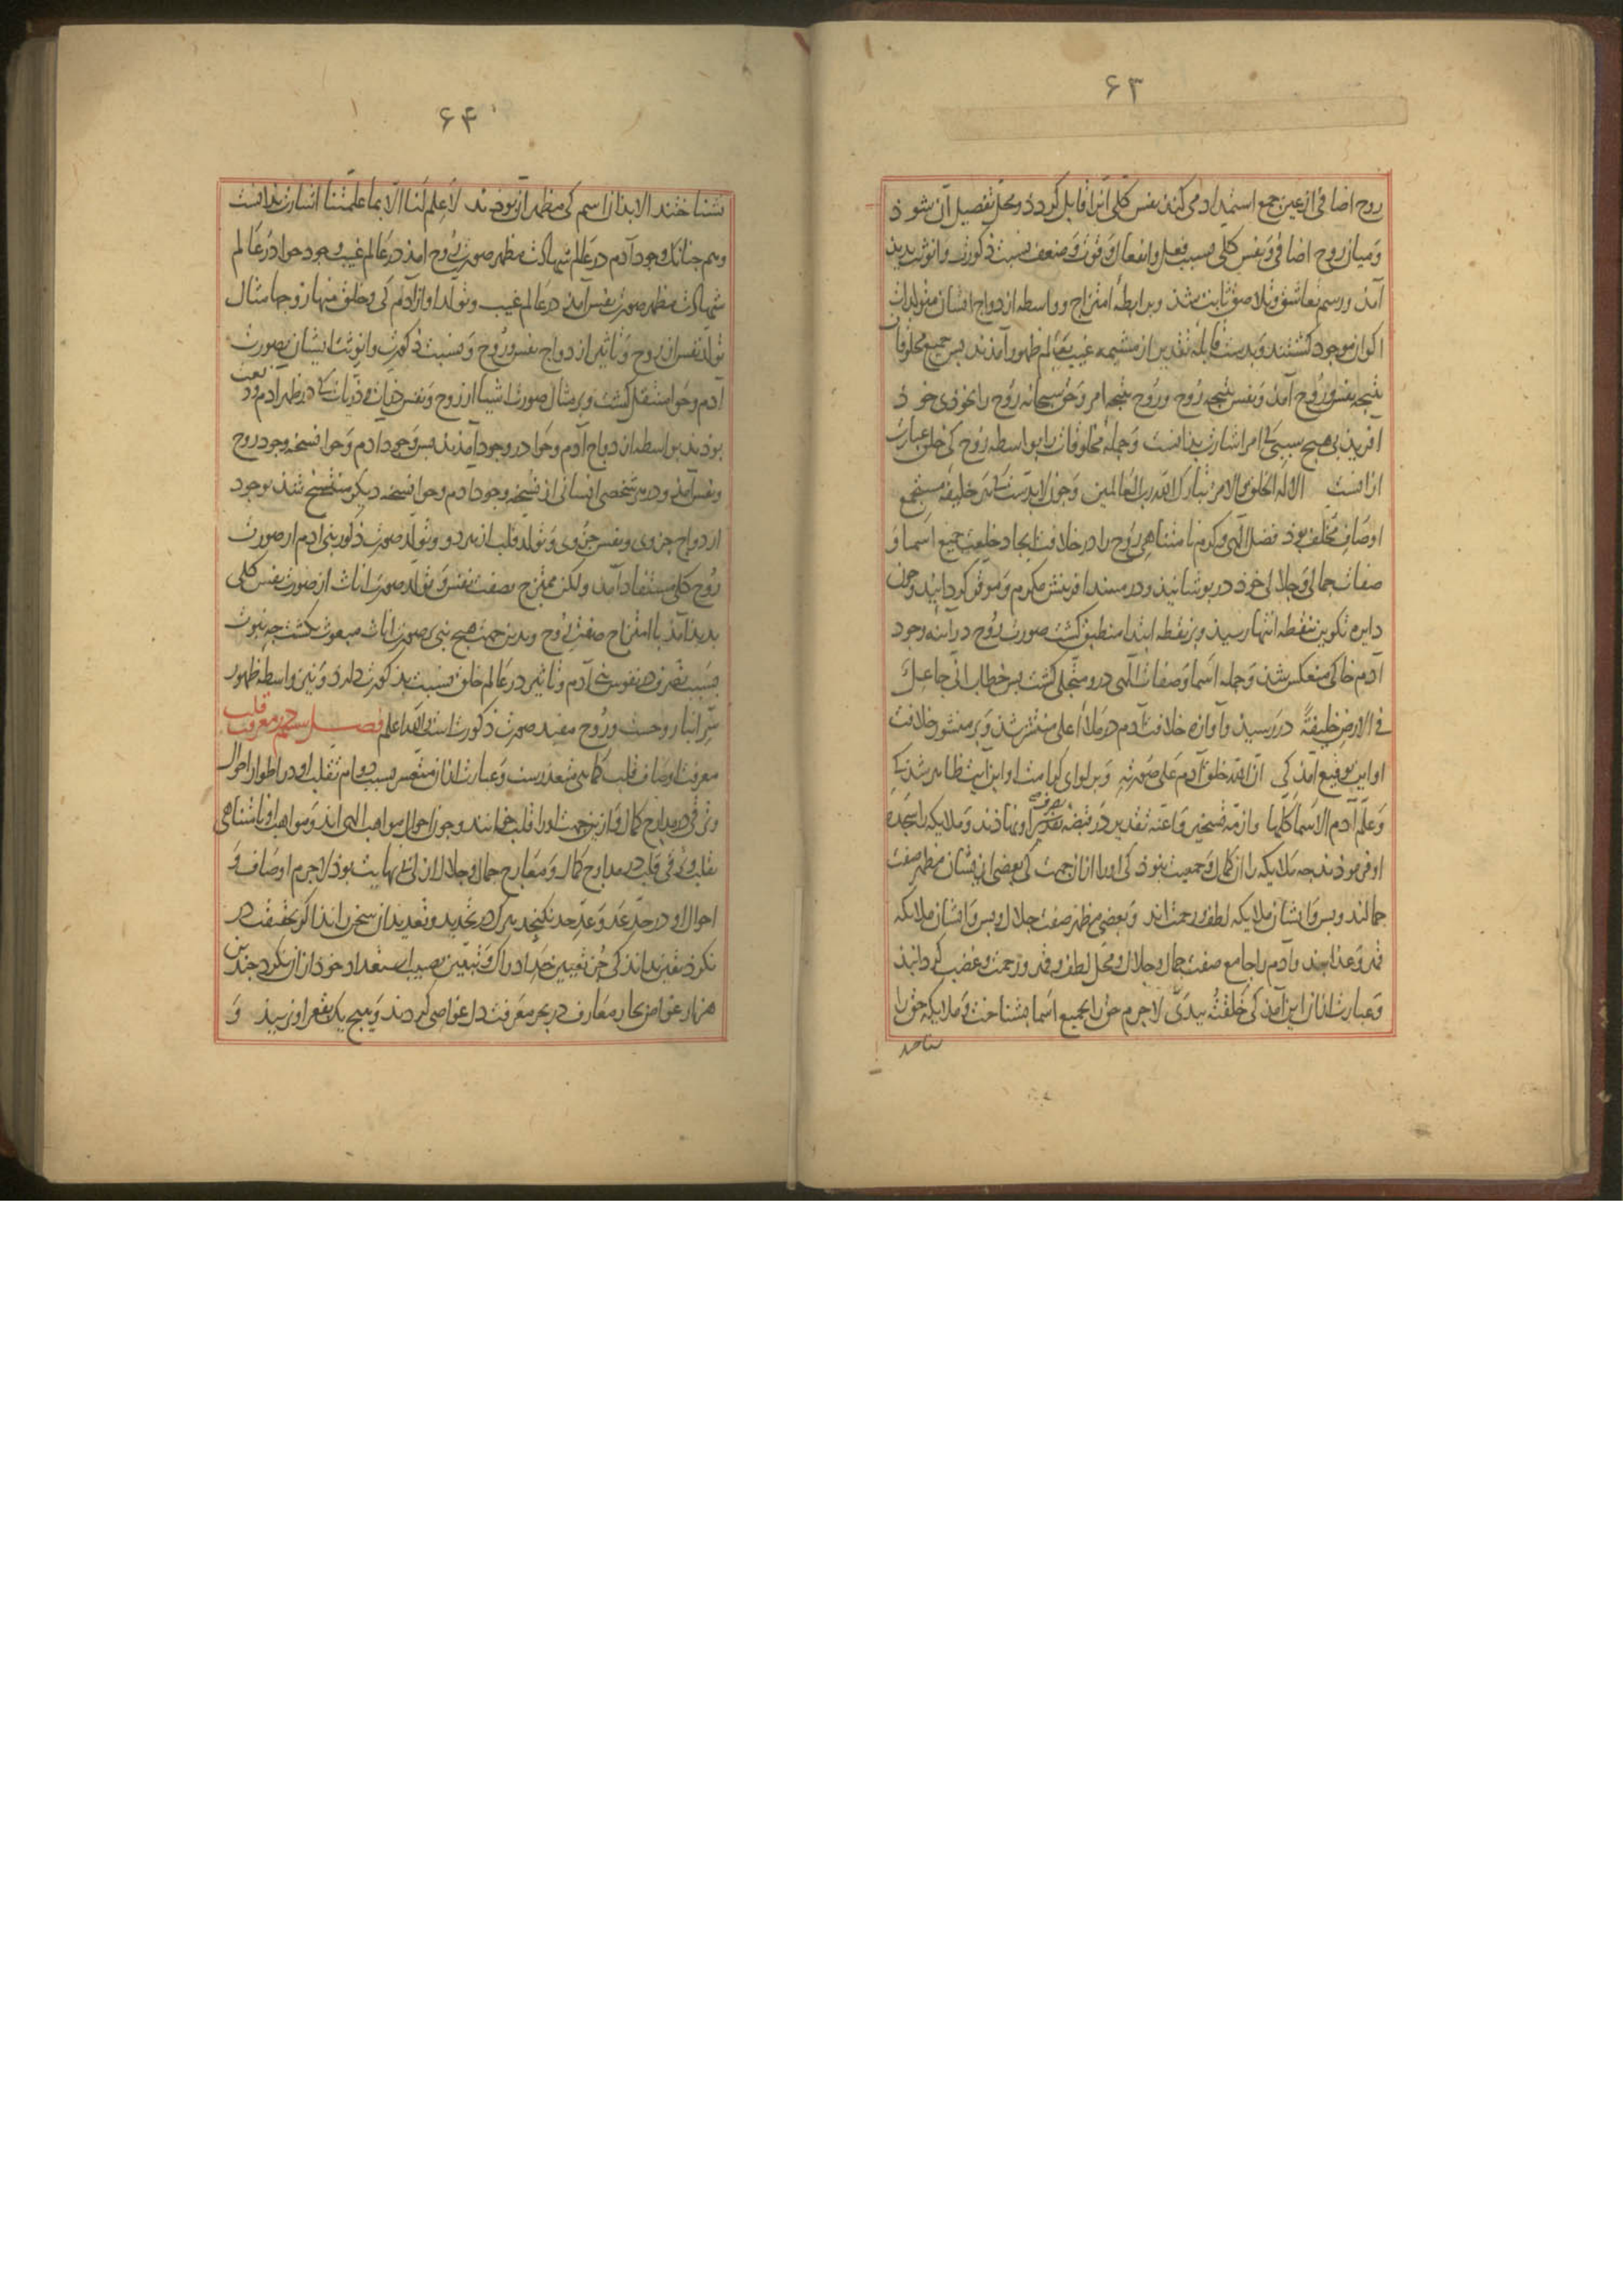 ۶۳
روح اضافی از عین جمع استمداد می کند نفس کلی آنرا قابل کردد و محل تفصیل آن شوذ
و میان روح اضافی و نفس کلی بسبب فعل و انفعال و قوت و ضعف نسبت ذکورت و انوثت بدید
آمذ و رسم تعاشق و تلاصق ثابت شذ و برابطهٔ امتزاج و واسطه ازدواج ایشان متولدات
اکوان موجود کشتند و بدست قابلهٔ تقدیر از مشیمه غیب بعالم ظهور آمذند بس جمیع مخلوقات
نتیجه نفس و روح آمذ و نفس نتیجه روح و روح نتیجه امر و حق سبحانه روح را بخوذی خوذ
افرید بی هیچ سببی کی امر اشارت بذانست و جملهٔ مخلوقات را بواسطه روح کی خلق عبارت
ازانست الا له الخلق و الامر تبارک الله رب العالمین و جون لابدست کی هر خلیفه مستجمع
اوصاف مخلف بوذ فضل الهی و کرم نامتناهی روح را در خلافت ایجاد خلعت جمیع اسما و
صفات جمالی و جلالی خوذ در بوشانید و در مسند افرینش مکرم و موقر کردانید و جون
دایره تکوین بنقطه انتها رسیذ و بر نقطه ابتدا منطبق کشت صورت روح در آینه وجود
آدم خاکی منعکس شذ و جمله اسما و صفات الهی درو متجلی کشت بس خطاب انی جاعل
فی الارض خلیفةً در رسیذ و آوازه خلافت آدم در ملأ اعلی منتشر شذ و بر منشور خلافت
او این توقیع آمذ کی ان الله خلق آدم علی صورته و بر لوای کرامت او این آیت ظاهر شذ کی
و علّم آدم الاسما کلها و ازمّه تسخیر و اعنّه تقدیر در قبضه تصرف او نهاذند و ملایکه را بسجده
او فرموذند جه ملایکه را ان کمال و جمعیت نبوذ کی او را ازان جهت کی بعضی از ایشان مظهر صفت
جمالند و بس و ایشان ملایکه لطف و رحمت اند و بعضی مظهر صفت جلال و بس و ایشان ملایکه
قهر و عذابند و آدم را جامع صفت جمال و جلال و محل لطف و قهر و رحمت و غضب کردانیذ
و عبارت ازان این آمذ کی خلقتُه بیدیّ لاجرم حق را بجمیع اسما بشناخت و ملایکه حق را
۶۴
نشناختند الا بذان اسم کی مظهر آن بوذند لا علم لنا الا بما علمتنا اشارت بذانست
و هم جنانک وجود آدم در عالم شهادت مظهر صورت روح امذ در عالم غیب وجود حوا در عالم
شهادت مظهر صورت نفس آمذ در عالم غیب و تولد او از آدم کی و خلق منها زوجها مثال
تولد نفس از روح و تاثیر ازدواج نفس و روح و نسبت ذکورت و انوثت ایشان بصورت
آدم و حوا منتقل کشت و بر مثال صورت اشیا از روح و نفس ذریات کی در ظهر آدم ودیعت
بوذند بواسطه ازدواج آدم و حوا در وجود آمذند بس وجود ادم و حوا نسخه وجود روح
و نفس آمذ و در هر شخصی انسانی از نسخه وجود ادم و حوا نسخه دیکر منتسخ شذ بوجود
ازدواج روح جزوی و نفس جزوی و تولد قلب از هر دو و تولد صورت ذکور بنی ادم از صورت
روح کلی مستفاد آمذ ولکن ممتزج بصفت نفس و تولد صورت اناث از صورت نفس کلی
بدید آمذ با امتزاج صفت روح و بدین جهت هیچ نبی بر صورت اناث مبعوث نکشت جه نبوت
بسبب تصرف در نفوس بنی آدم و تاثیر در عالم خلق نسبت بذکورت دارد و نیز واسطه ظهور
سرّ انبیا روحست و روح مفید صورت ذکورت است والله اعلم فصل سیم در معرفت قلب
معرفت اوصاف قلب کماهی متعذرست و عبارت ازان متعسر بسبب دوام تقلب او در اطوار احوال
و ترقی در مدارج کمال و ازین جهت او را قلب خوانند و جون احوال مواهب الهی اند و مواهب او نامتناهی
تقلب و ترقی قلب در مدارج کمال و معارج جمال و جلال ازلی بی نهایت بوذ لاجرم اوصاف و
احوال او در حدّ عدّ و عدّ حد نکنجد هرک در تحدید و تعدید ان سخن راند اکر بحقیقت در
نکرد یقین بداند کی جز تعیین حد ادراک و تبیین نصیب استعداد خوذ ازان نکرد جندین
هزار غواص بحار معارف در بحر معرفت دل غواصی کردند و هیچ یک بقعر او نرسیذ و